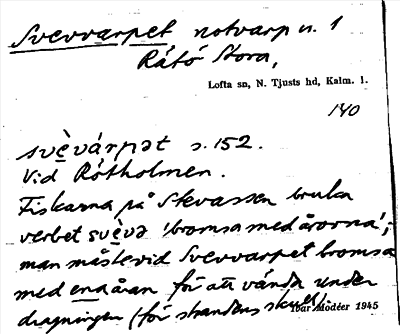 Svevvarpet notvarp n. 1
Rätö Stora,
Lofta sn, N. Tjusts hd, Kalm. l.
140
svèvárpət s. 152.
Vid Rötholmen.
Fiskarna på Skvassen bruka
verbet svèvə 'bromsa med årorna';
man måste vid Svevvarpet bromsa
med ena åran för att vända under
dragningen (för strandens skull).
Ivar Modéer 1945